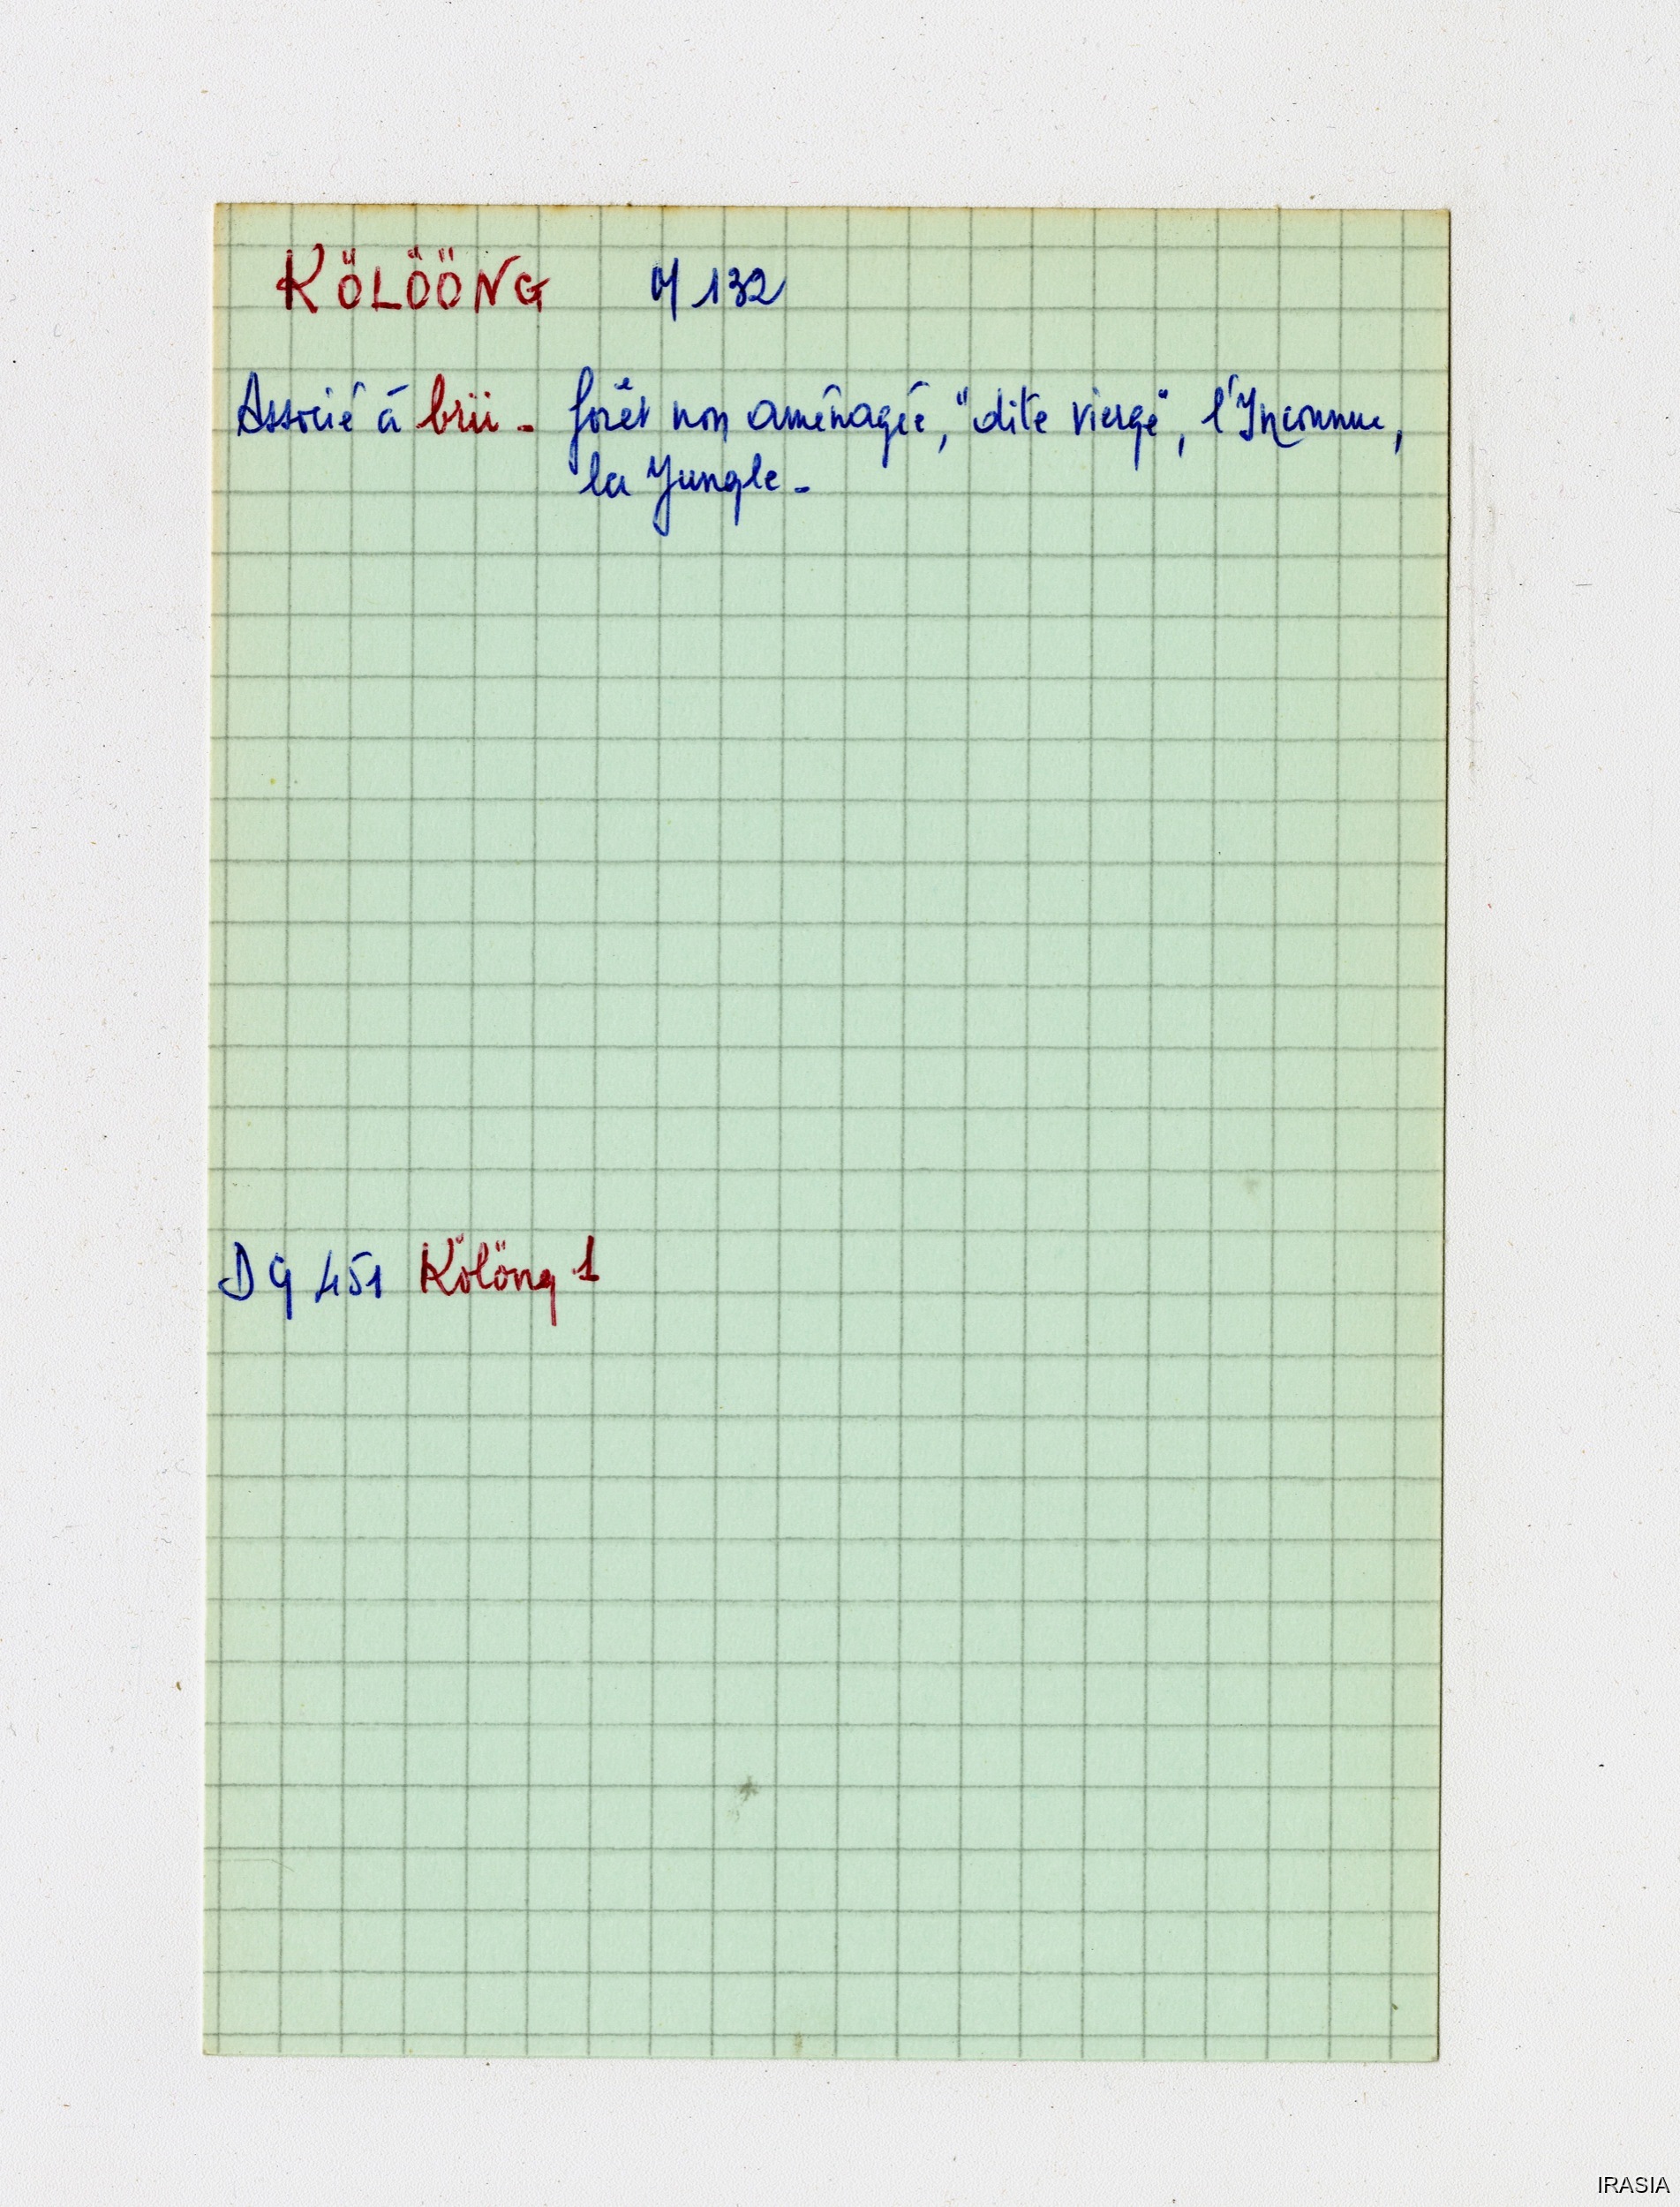 KÖLÖÖNG M 132
Associé à brii - forêt non aménagée, "dite vierge", l'Inconnue,
la Jungle -
DG 451 Kölöng 1
IRASIA